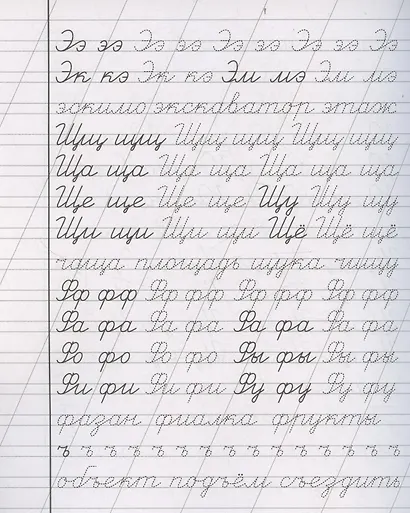 Ээ ээ Ээ ээ Ээ ээ Ээ ээ Ээ
Эк кэ Эк кэ Эм мэ Эм мэ
эскимо экскаватор этаж
Щщ щщ Щщ щщ Щщ щщ
Ща ща Ща ща Ща ща ща
Ще ще Ще ще Щу Щу щу
Щи щи Щи щи Щё Щё щё
чаща площадь щука чищу
Фф фф Фф фф Фф фф Фф фф
Фа фа Фа фа Фа фа Фа фа
Фо фо Фо фо Фы фы Фы фы
Фи фи Фи фи Фу фу Фу фу
фазан фиалка фрукты
ъ ъ ъ ъ ъ ъ ъ ъ ъ ъ ъ ъ ъ ъ ъ ъ ъ
объект подъём съездить